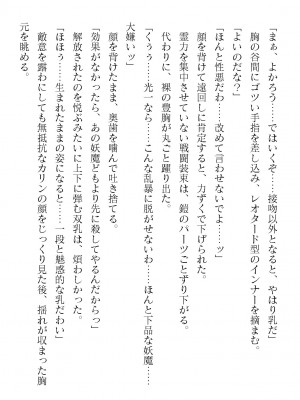 「まぁ、よかろう……ではいくぞ……接吻以外となると、やはり乳だ」
胸の谷間にゴツい手指を差し込み、レオタード型のインナーを摘まむ。
「よいのだな？」
「ほんと性悪だわ……改めて言わせないでよ……ッ」
顔を背けて遠回しに肯定すると、力ずくで下げられた。
霊力を集中させていない戦闘装束は、鎧のパーツごとずり下がる。
代わりに、裸の豊胸が丸ごと躍り出た。
「くぅう……光一なら……こんな乱暴に脱がせないわ……ほんと下品な妖魔……
大嫌いッ」
顔を背けたまま、奥歯を噛んで吐き捨てる。
「効果がなかったら、あの妖魔どもより先に殺してやるんだからっ」
解放されたのを悦ぶみたいに上下に弾む双乳は、煩わしかった。
「ほほぅ……生まれたままの姿になると……一段と魅惑的な乳だわい」
敵意を露わにしても無抵抗なカリンの顔をじっくり見た後、揺れが収まった胸
元を眺める。